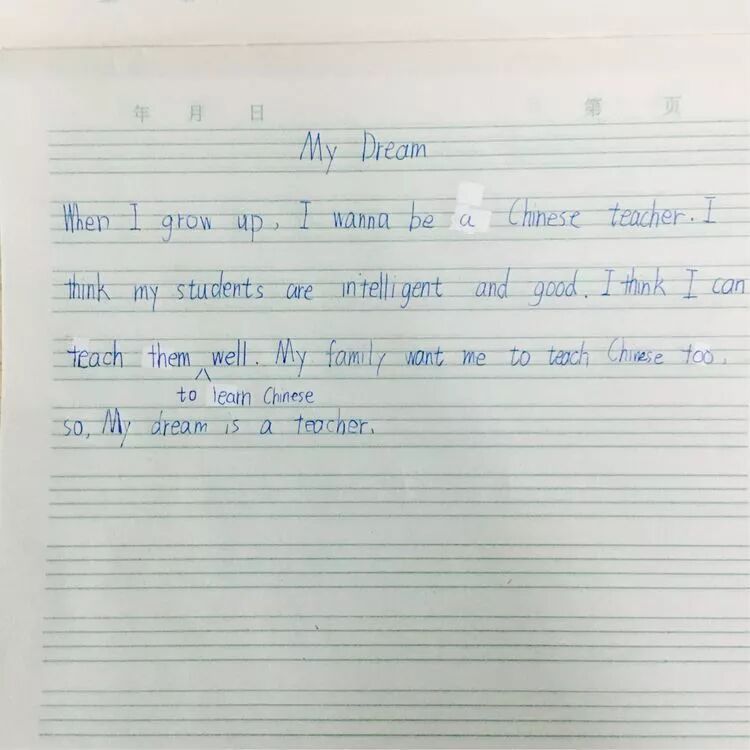 年 月 日 第 页
My Dream
When I grow up, I wanna be a Chinese teacher. I
think my students are intelligent and good. I think I can
teach them well. My family want me to teach Chinese too.
to learn Chinese
so, My dream is a teacher.